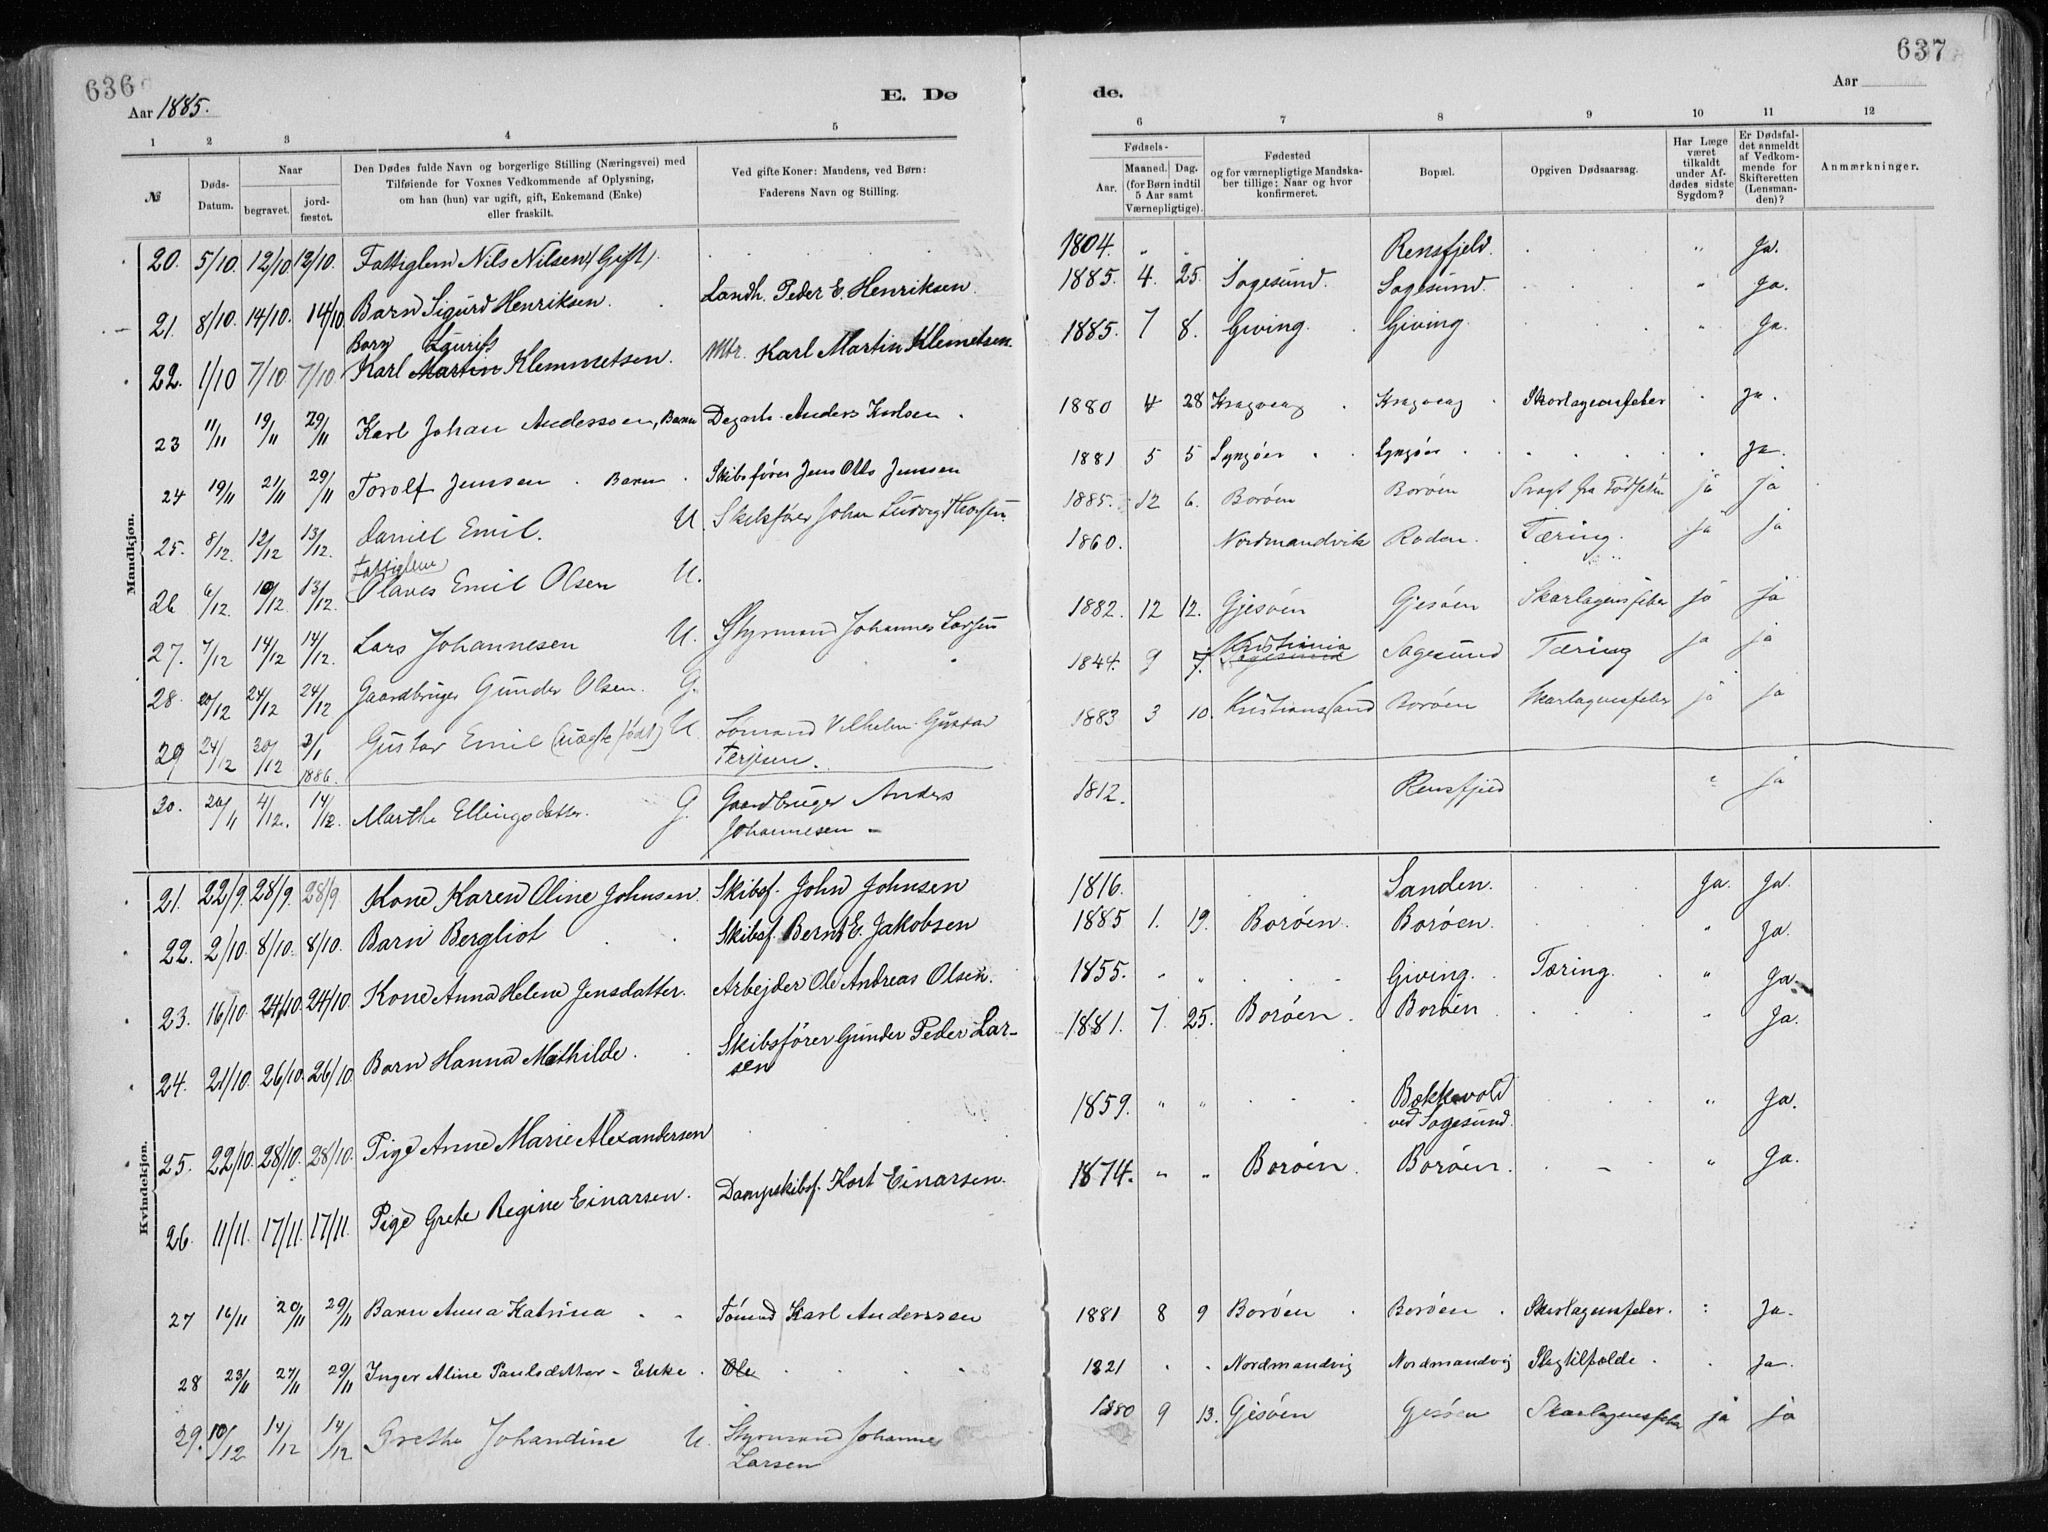 636
637
Aar 1885.
E. Dø
de.
Aar
1 2 3 4 5
6 7 8 9 10 11 12
№
Døds-Datum.
Naar
begravet.
jordfæstet.
Den Dødes fulde Navn og borgerlige Stilling (Næringsvei) med
Tilføiende for Voxnes Vedkommende af Oplysning,
om han (hun) var ugift, gift, Enkemand (Enke)
eller fraskilt.
Ved gifte Koner: Mandens, ved Børn:
Faderens Navn og Stilling.
Fødsels-
Aar.
Maaned. Dag.
(for Børn indtil
5 Aar samt
Værnepligtige).
Fødested
og for værnepligtige Mandska-
ber tillige: Naar og hvor
konfirmeret.
Bopæl.
Opgiven Dødsaarsag.
Har Læge
været
tilkaldt
under Af-
dødes sidste
Sygdom?
Er Dødsfal-
det anmeldt
af Vedkom-
mende for
Skifteretten
(Lensman-
den)?
Anmærkninger.
Mandkjøn.
20. 5/10. 12/10. 12/10. Fattiglem Nils Nilsen (Gift). 1804. " " Rensfjeld. " Ja.
21. 8/10. 14/10. 14/10. Barn Sigurd Henriksen. Landh. Peder E. Henriksen. 1885. 4. 25. Sagesund. Sagesund. " Ja.
Barn Lauritz
22. 1/10 7/10 7/10. Karl Martin Klemmetsen. Mtr. Karl Martin Klemetsen. 1885. 7 8. Giving. Giving. " Ja.
23 11/11 19/11 29/11 Karl Johan Anderssen, Barn Dagarb. Anders Karlsen. 1880 4 28 Kragvaag Kragvaag Skarlagensfeber Ja.
24 19/11 21/11 29/11 Torolf Jenssen. Barn. Skibsfører Jens Otto Jenssen 1881 5 5 Lyngøer Lyngøer Ja.
25. 8/12. 12/12 13/12. Daniel Emil. U. Skibsfører Johan Ludvig Thorsen. 1885. 12 6. Borøen Borøen Svagt fra Fødselen ja ja
Fattiglem
26 6/12 10/12 13/12. Olaves Emil Olsen U. 1860. Nordmandvik Roden. Tæring. ja ja
27. 7/12 14/12 14/12. Lars Johannesen U. Styrmand Johannes Larsen 1882. 12 12. Gjesøen Gjesøen Skarlagensfeber ja ja
28. 20/12 24/12 24/12 Gaardbruger Gunder Olsen. G. 1844. 9 7. Sagesund Kristiania Sagesund Tæring ja ja
29 24/12 30/12 3/1 1886. Gustav Emil (uægte født) U. Sømand Vilhelm Gustav
Terjesen. 1883 3 10. Kristianssand Borøen Skarlagensfeber ja ja
30. 20/11 4/12. 14/12. Marthe Ellingsdatter. G. Gaardbruger Anders
Johannesen 1812. Rensfjeld " ja
Kvindekjøn.
21. 22/9. 28/9. 28/9 Kone Karen Oline Johnsen. Skibsf. John Johnsen 1816. Sanden. Ja. Ja.
22. 2/10. 8/10. 8/10. Barn Bergliot Skibsf. Bernt E. Jakobsen 1885 1. 19. Borøen. Borøen. " Ja.
23. 16/10. 24/10. 24/10. Kone Anna Helene Jensdatter. Arbejder Ole Andreas Olsen. 1855. " " Giving. Tæring. " Ja.
24. 21/10. 26/10. 26/10. Barn Hanna Mathilde. Skibsfører Gunder Peder Lar-
sen 1881. 7. 25. Borøen. Borøen " Ja.
25. 22/10. 28/10. 28/10. Pige Anne Marie Alexandersen 1859. " " Bakkevold
ved Sagesund. " Ja.
26. 11/11. 17/11. 17/11. Pige Grete Regine Einarsen. Dampskibsf. Kort Einarsen. 1874. " " Borøen. Borøen. " Ja.
27 16/11 20/11 29/11 Barn Anna Katrina Sømd Karl Anderssen 1881 8 9 Borøen Borøen Skarlagensfeber. Ja.
28 23/11 27/11 29/11 Inger Aline Paulsdatter - Enke. Ole 1821 Nordmandvig Nordmandvig Slagtilfælde. Ja.
29. 10/12 14/12 14/12 Grethe Johandine U. Styrmand Johannes
Larsen 1880 9 13. Gjesøen Gjesøen Skarlagensfeber ja ja